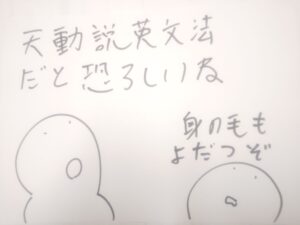 天動説英文法
だと恐ろしいね
身の毛も
よだつぞ